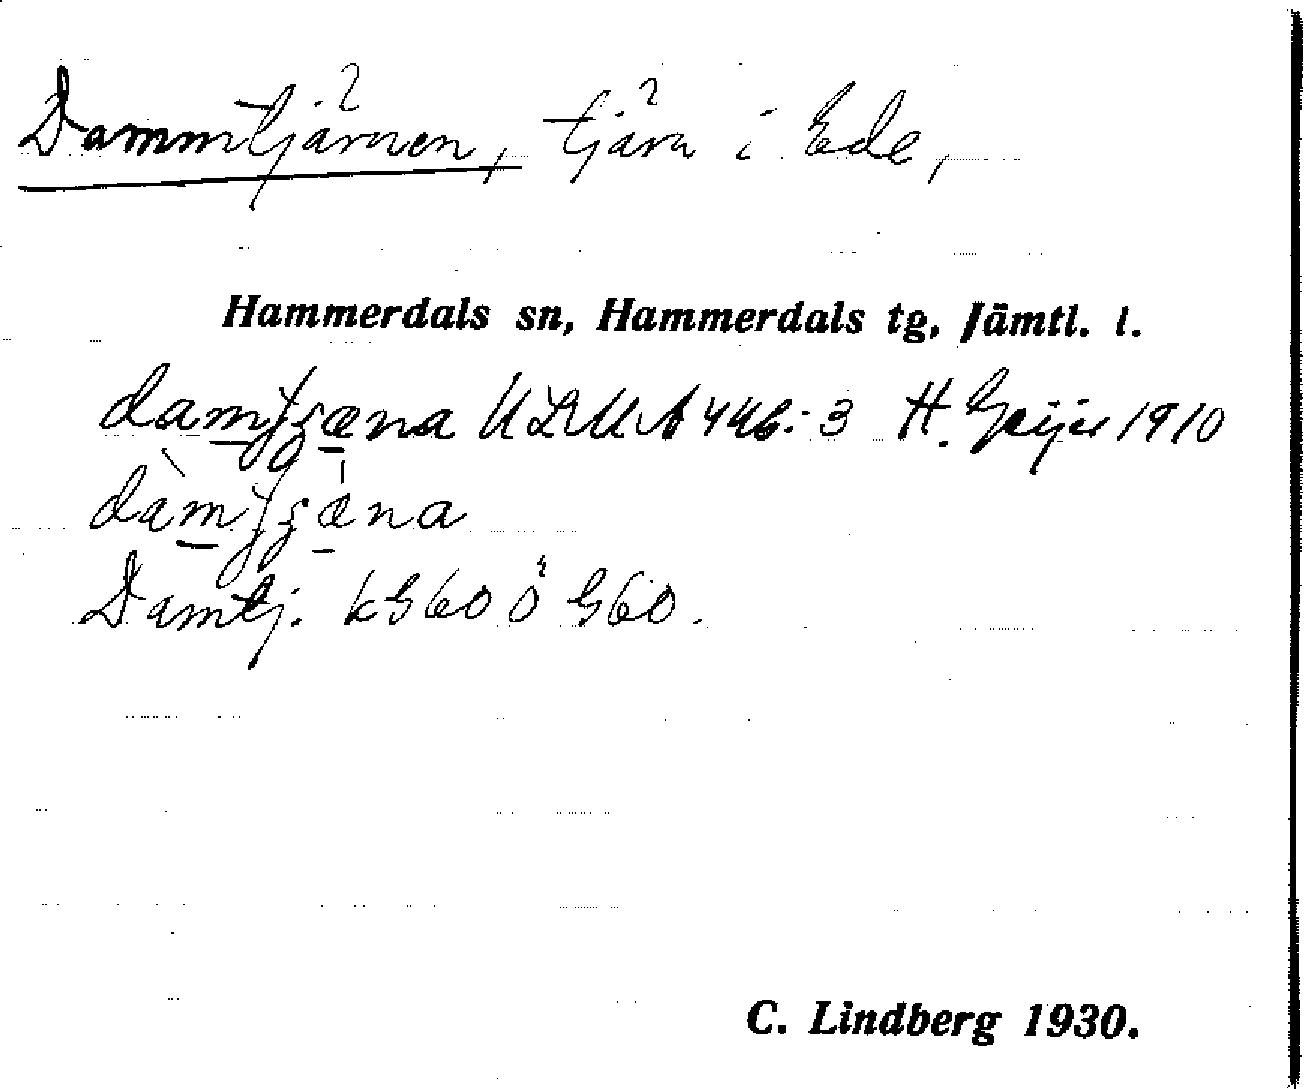 Dammtjärnen, tjärn i Ede,
Hammerdals sn, Hammerdals tg, Jämtl. l.
ULMA 446:3 H. Geijer 1910
Damtj. kG60 ö G60.
C. Lindberg 1930.